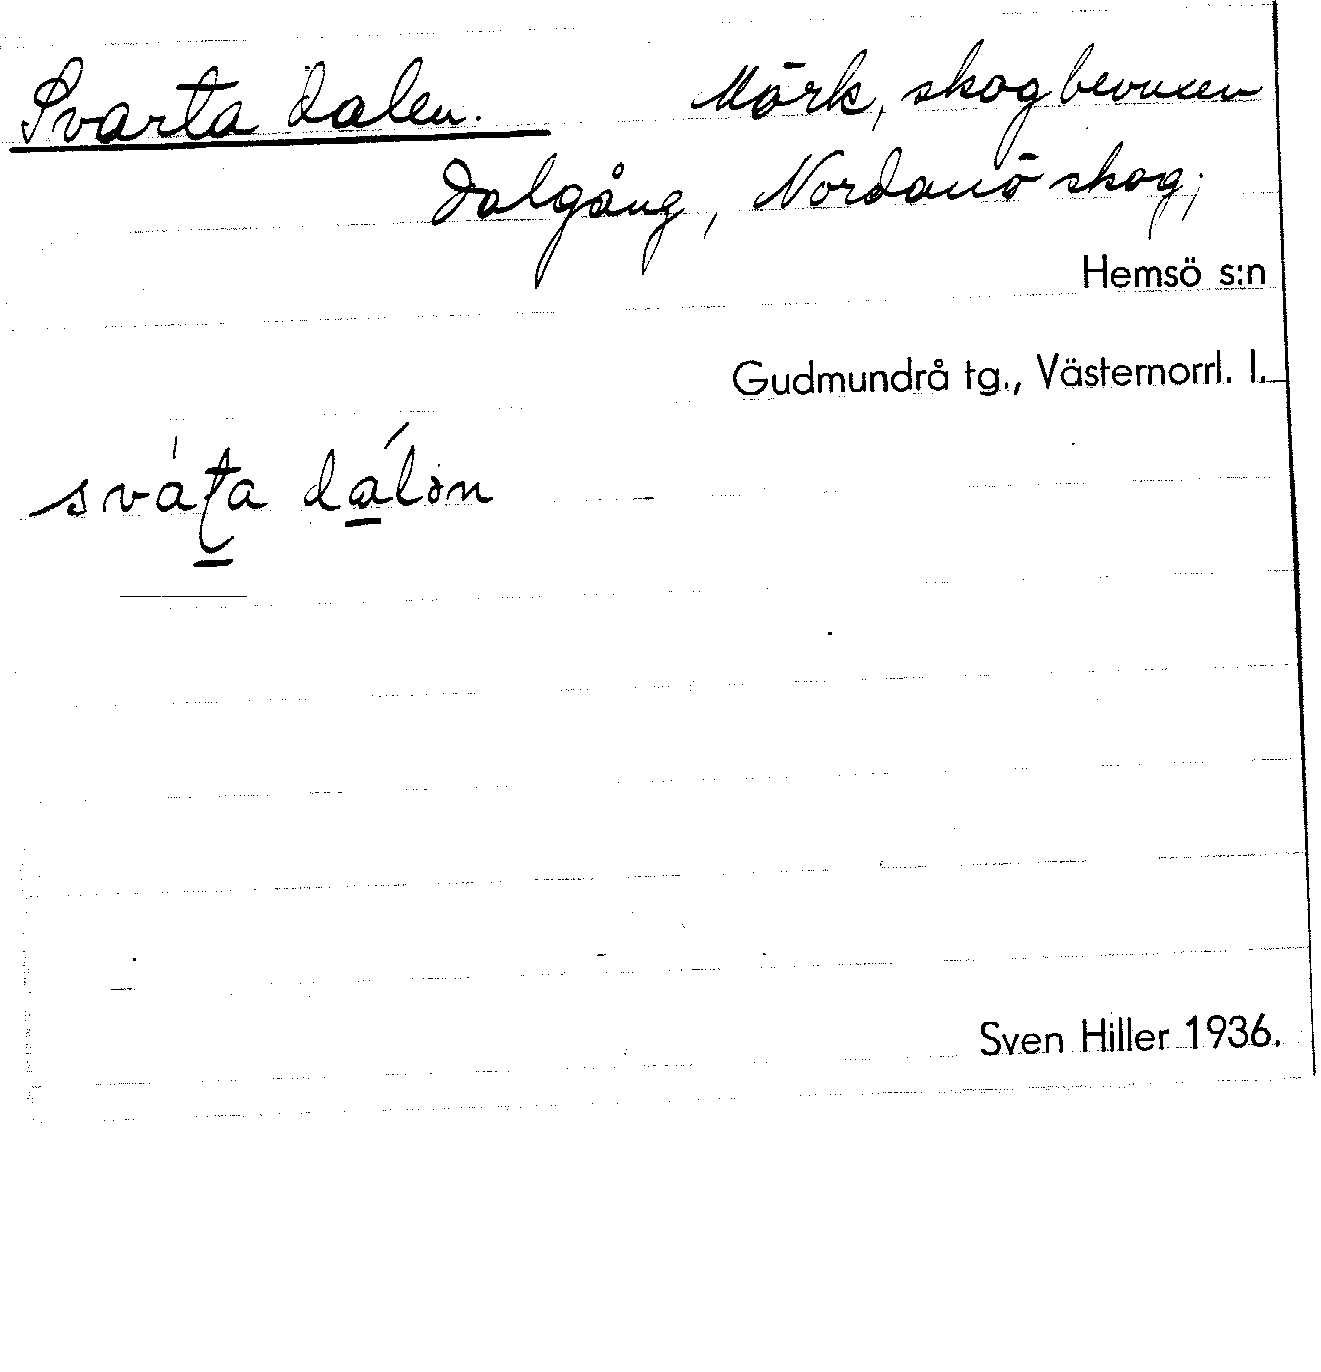 Svarta dalen. Mörk, skogbevuxen
Dalgång, Nordanö skog;
Hemsö s:n
Gudmundrå tg., Västernorrl. l.
sváʈa dálən
Sven Hiller 1936.